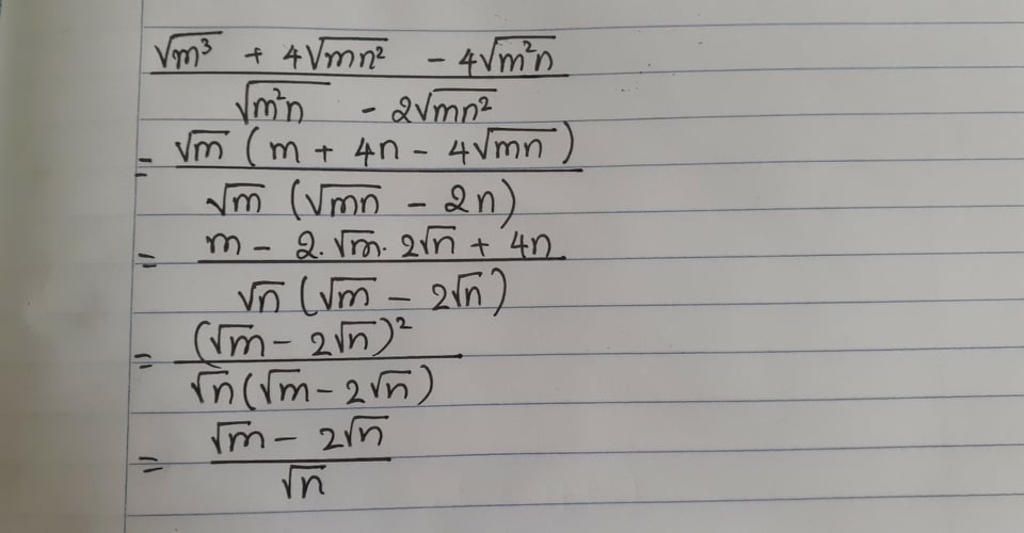 √m³ + 4√mn² - 4√m²n
√m²n - 2√mn²
= √m (m + 4n - 4√mn)
√m (√mn - 2n)
= m - 2.√m.2√n + 4n
√n (√m - 2√n)
= (√m - 2√n)²
√n (√m - 2√n)
= √m - 2√n
√n